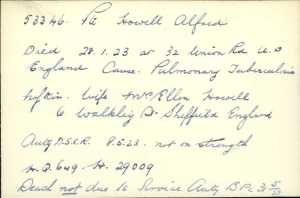 53346. Pte Howell Alfred
Died 28.1.23 at 32 Union Rd
England Cause. Pulmonary Tuberculosis
Wife Ellen Howell
6 Walkley Sheffield England
Auty D.S.C.R. 8.5.23. not on strength
H.Q. 649-H-29009
Death not due to Service Auty B.P.C.